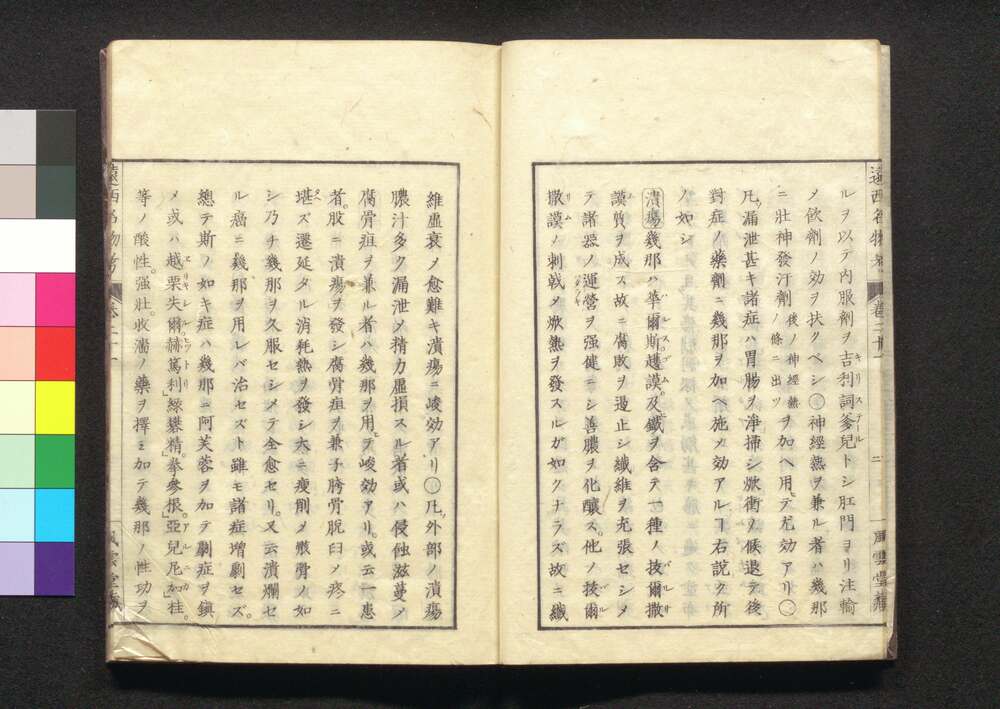 ルヲ以テ内服劑ヲ吉利詞爹兒トシ肛門ヨリ注輸
メ飮劑ノ効ヲ扶クベシ㊀神經熱ヲ兼ル者ハ幾那
ニ壯神發汗劑後ノ神經熱ノ條ニ出ツヲ加ヘ用テ尤効アリ㊁
凡漏泄甚キ諸症ハ胃腸ヲ淨掃シ焮衝ノ候退テ後
對症ノ藥劑ニ幾那ヲ加ヘ施メ効アルヿ右說ク所
ノ如シ
潰瘍幾那ハ華爾斯謨及纖ヲ含テ一種ノ撥爾撒
謨質ヲ成ス故ニ腐敗ヲ遏止シ纖維ヲ充張セシメ
テ諸器ノ運營ヲ强健ニシ善膿ヲ化釀ス他ノ拔爾
撒謨ノ刺戟メ焮熱ヲ發スルガ如クナラズ故ニ纖
維虛衰メ愈難キ潰瘍ニ峻効アリ㊀凡外部ノ潰瘍
膿汁多ク漏泄メ精力虛損スル者或ハ侵蝕滋蔓メ
腐骨疽ヲ兼ル者ハ幾那ヲ用テ峻効アリ或云一患
者股ニ潰瘍ヲ發シ腐骨疽ヲ兼子胯骨脫臼メ疼ニ
堪ズ遷延メ消耗熱ヲ發シ大ニ瘦削メ骸骨ノ如
シ乃チ幾那ヲ久服セシメテ全愈セリ又云潰爛セ
ル癌ニ幾那ヲ用レバ治セズト雖モ諸症增劇セズ
總テ斯ノ如キ症ハ幾那ニ阿芙蓉ヲ加テ劇症ヲ鎭
メ或ハ越栗失爾赫篤利綠礬精拳參根亞兒尼加桂
等ノ酸性强壯收濇ノ藥ヲ擇ミ加テ幾那ノ性功ヲ